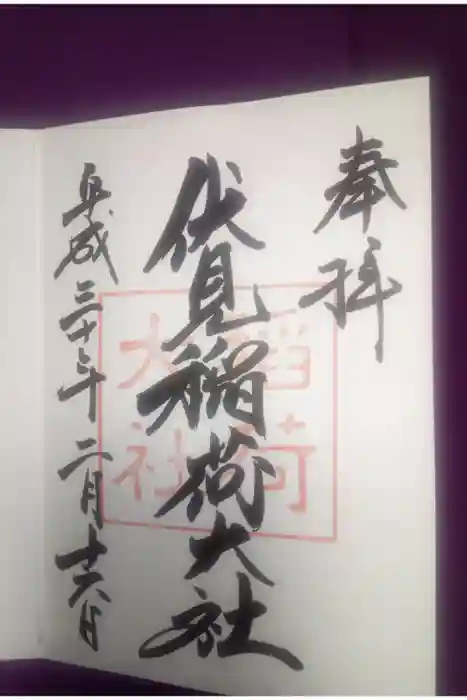 奉拝
伏見稲荷大社
稲荷
大社
平成三十年二月十六日